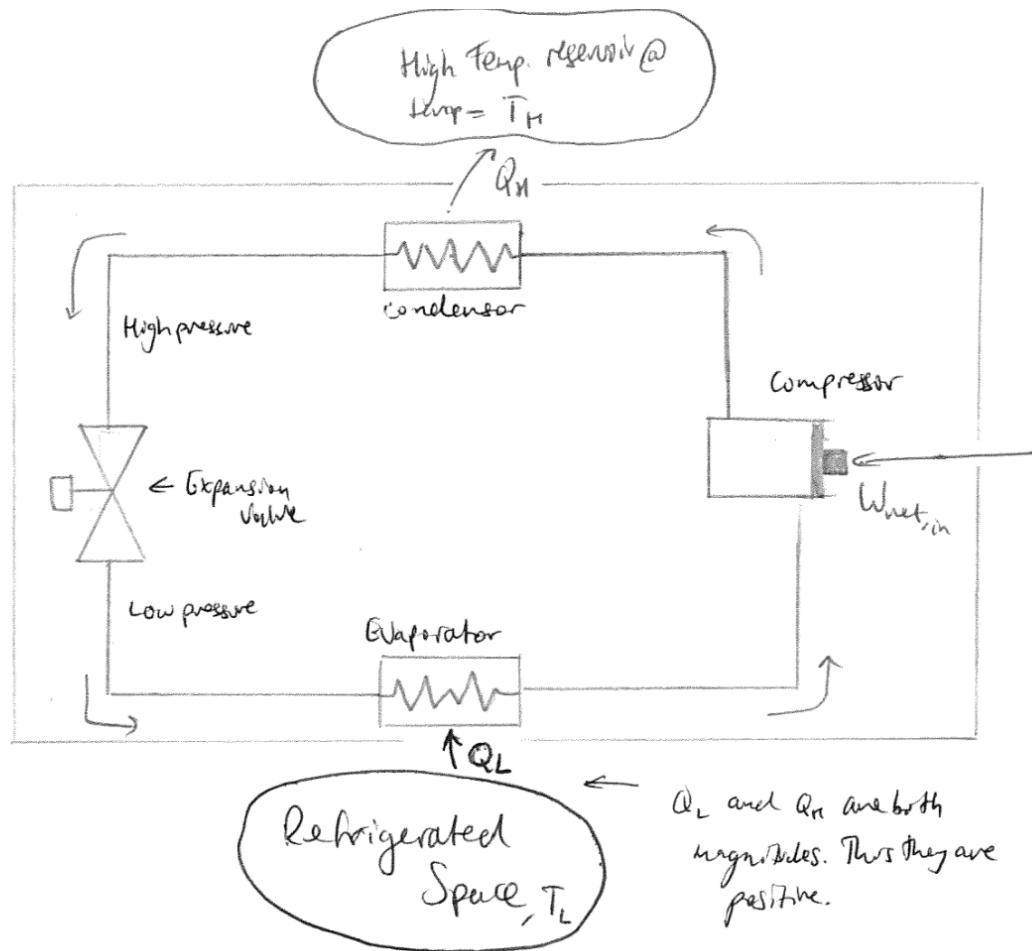 High Temp. reservoir @
temp = T_H
Q_H
condensor
High pressure
Compressor
← Expansion
valve
W_net,in
Low pressure
Evaporator
Q_L
Refrigerated
Space, T_L
Q_L and Q_H are both
magnitudes. Thus they are
positive.